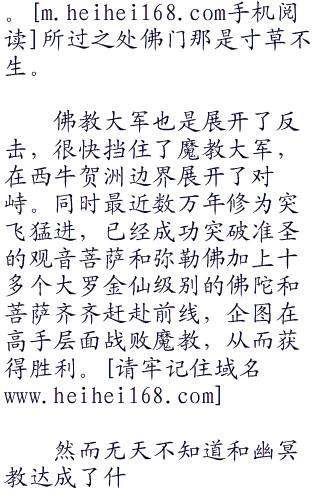 。[m.heihei168.com手机阅
读]所过之处佛门那是寸草不
生。
佛教大军也是展开了反
击，很快挡住了魔教大军，
在西牛贺洲边界展开了对
峙。同时最近数万年修为突
飞猛进，已经成功突破准圣
的观音菩萨和弥勒佛加上十
多个大罗金仙级别的佛陀和
菩萨齐齐赶赴前线，企图在
高手层面战败魔教，从而获
得胜利。[请牢记住域名
www.heihei168.com]
然而无天不知道和幽冥
教达成了什